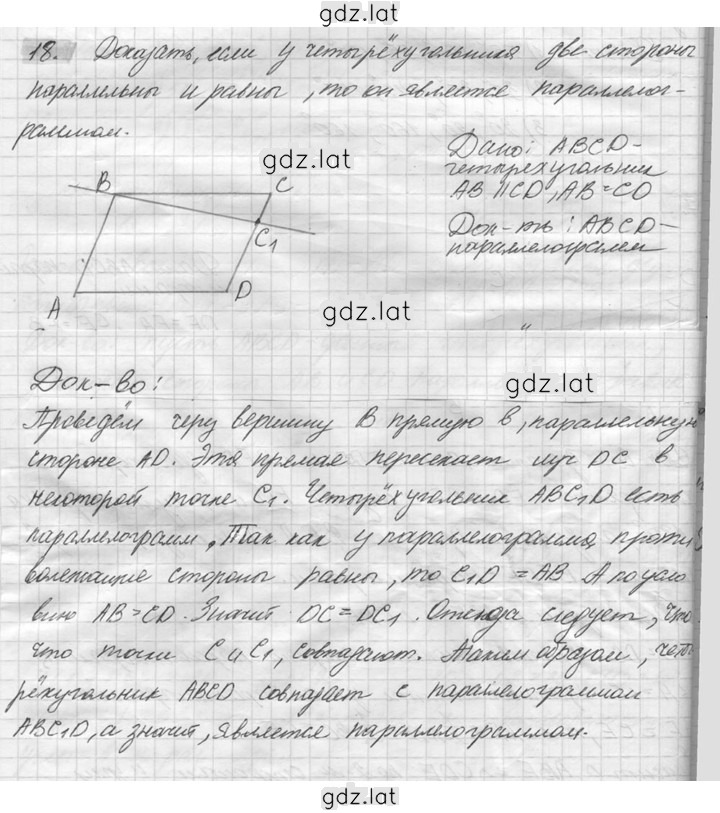 gdz.lat
18. Доказать, если у четырёхугольника две стороны
параллельны и равны, то он является параллелог-
раммом.
gdz.lat
Дано: ABCD-
четырёхугольник
AB || CD, AB=CD
Док-ть: ABCD-
параллелограмм
B
C
C1
A
D
gdz.lat
Док-во:
gdz.lat
Проведём через вершину B прямую в, параллельную
стороне AD. Эта прямая пересекает луч DC в
некоторой точке C1. Четырёхугольник ABC1D есть
параллелограмм. Так как у параллелограмма проти
волежащие стороны равны, то C1D = AB А по усло
вию AB=CD. Значит DC=DC1. Отсюда следует, что
что точки C и C1, совпадают. Таким образом, четы
рёхугольник ABCD совпадает с параллелограммом
ABC1D, а значит, является параллелограммом.
gdz.lat